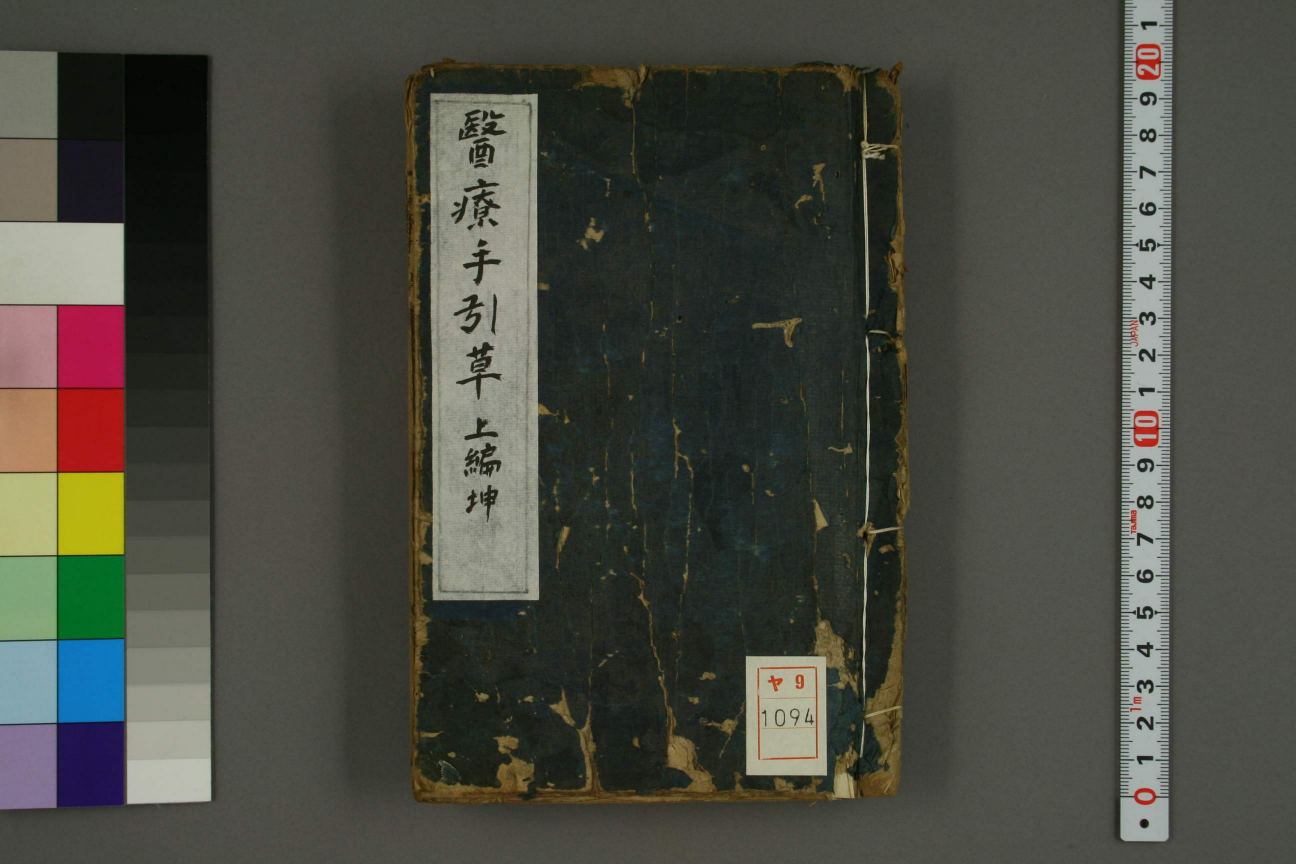 醫療手引草 上編 坤
ヤ 9
1094
1
20
9
8
7
6
5
4
3
JAPAN
2
1
10
9
8
Tajima
7
6
5
4
3
1m
2
1
0